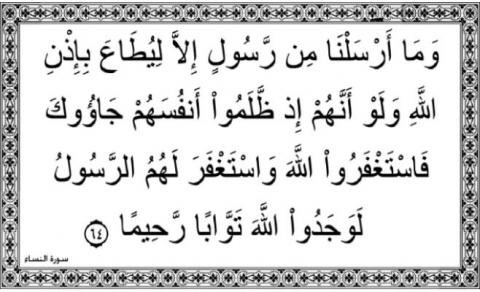 وَمَا أَرْسَلْنَا مِن رَّسُولٍ إِلاَّ لِيُطَاعَ بِإِذْنِ
اللّهِ وَلَوْ أَنَّهُمْ إِذ ظَّلَمُواْ أَنفُسَهُمْ جَآؤُوكَ
فَاسْتَغْفَرُواْ اللّهَ وَاسْتَغْفَرَ لَهُمُ الرَّسُولُ
لَوَجَدُواْ اللّهَ تَوَّابًا رَّحِيمًا ٦٤
سورة النساء